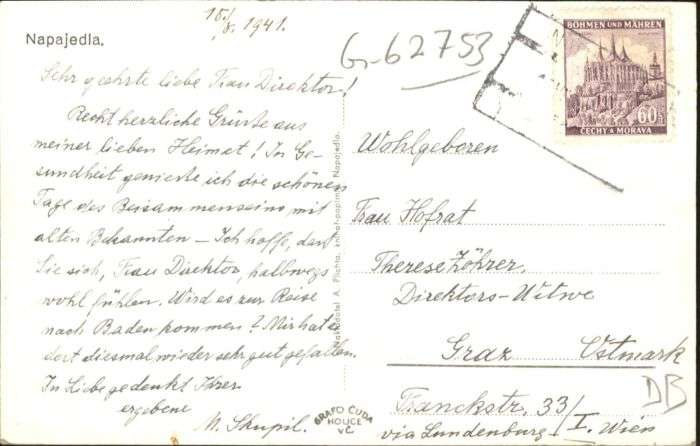 Napajedla.
15./8. 1941.
G-62753
Sehr geehrte liebe Frau Direktor!
Recht herzliche Grüsse aus
meiner lieben Heimat! In Ge-
sundheit geniesse ich die schönen
Tage des Beisammenseins mit
alten Bekannten – Ich hoffe, dass
Sie sich, Frau Direktor, halbwegs
wohl fühlen. Wird es zur Reise
nach Baden kommen? Mir hat es
dort diesmal wieder sehr gut gefallen.
In Liebe gedenkt Ihrer
ergebene
M. Skupil.
Nakladatel A. Plucha, knihař-papírník, Napajedla.
GRAFO ČUDA
HOLICE
V Č.
BÖHMEN UND MÄHREN
60h
ČECHY A MORAVA
Wohlgeboren
Frau Hofrat
Therese Zöhrer,
Direktors-Witwe
Graz Ostmark
Franckstr. 33/I.
via Lundenburg – Wien
DB